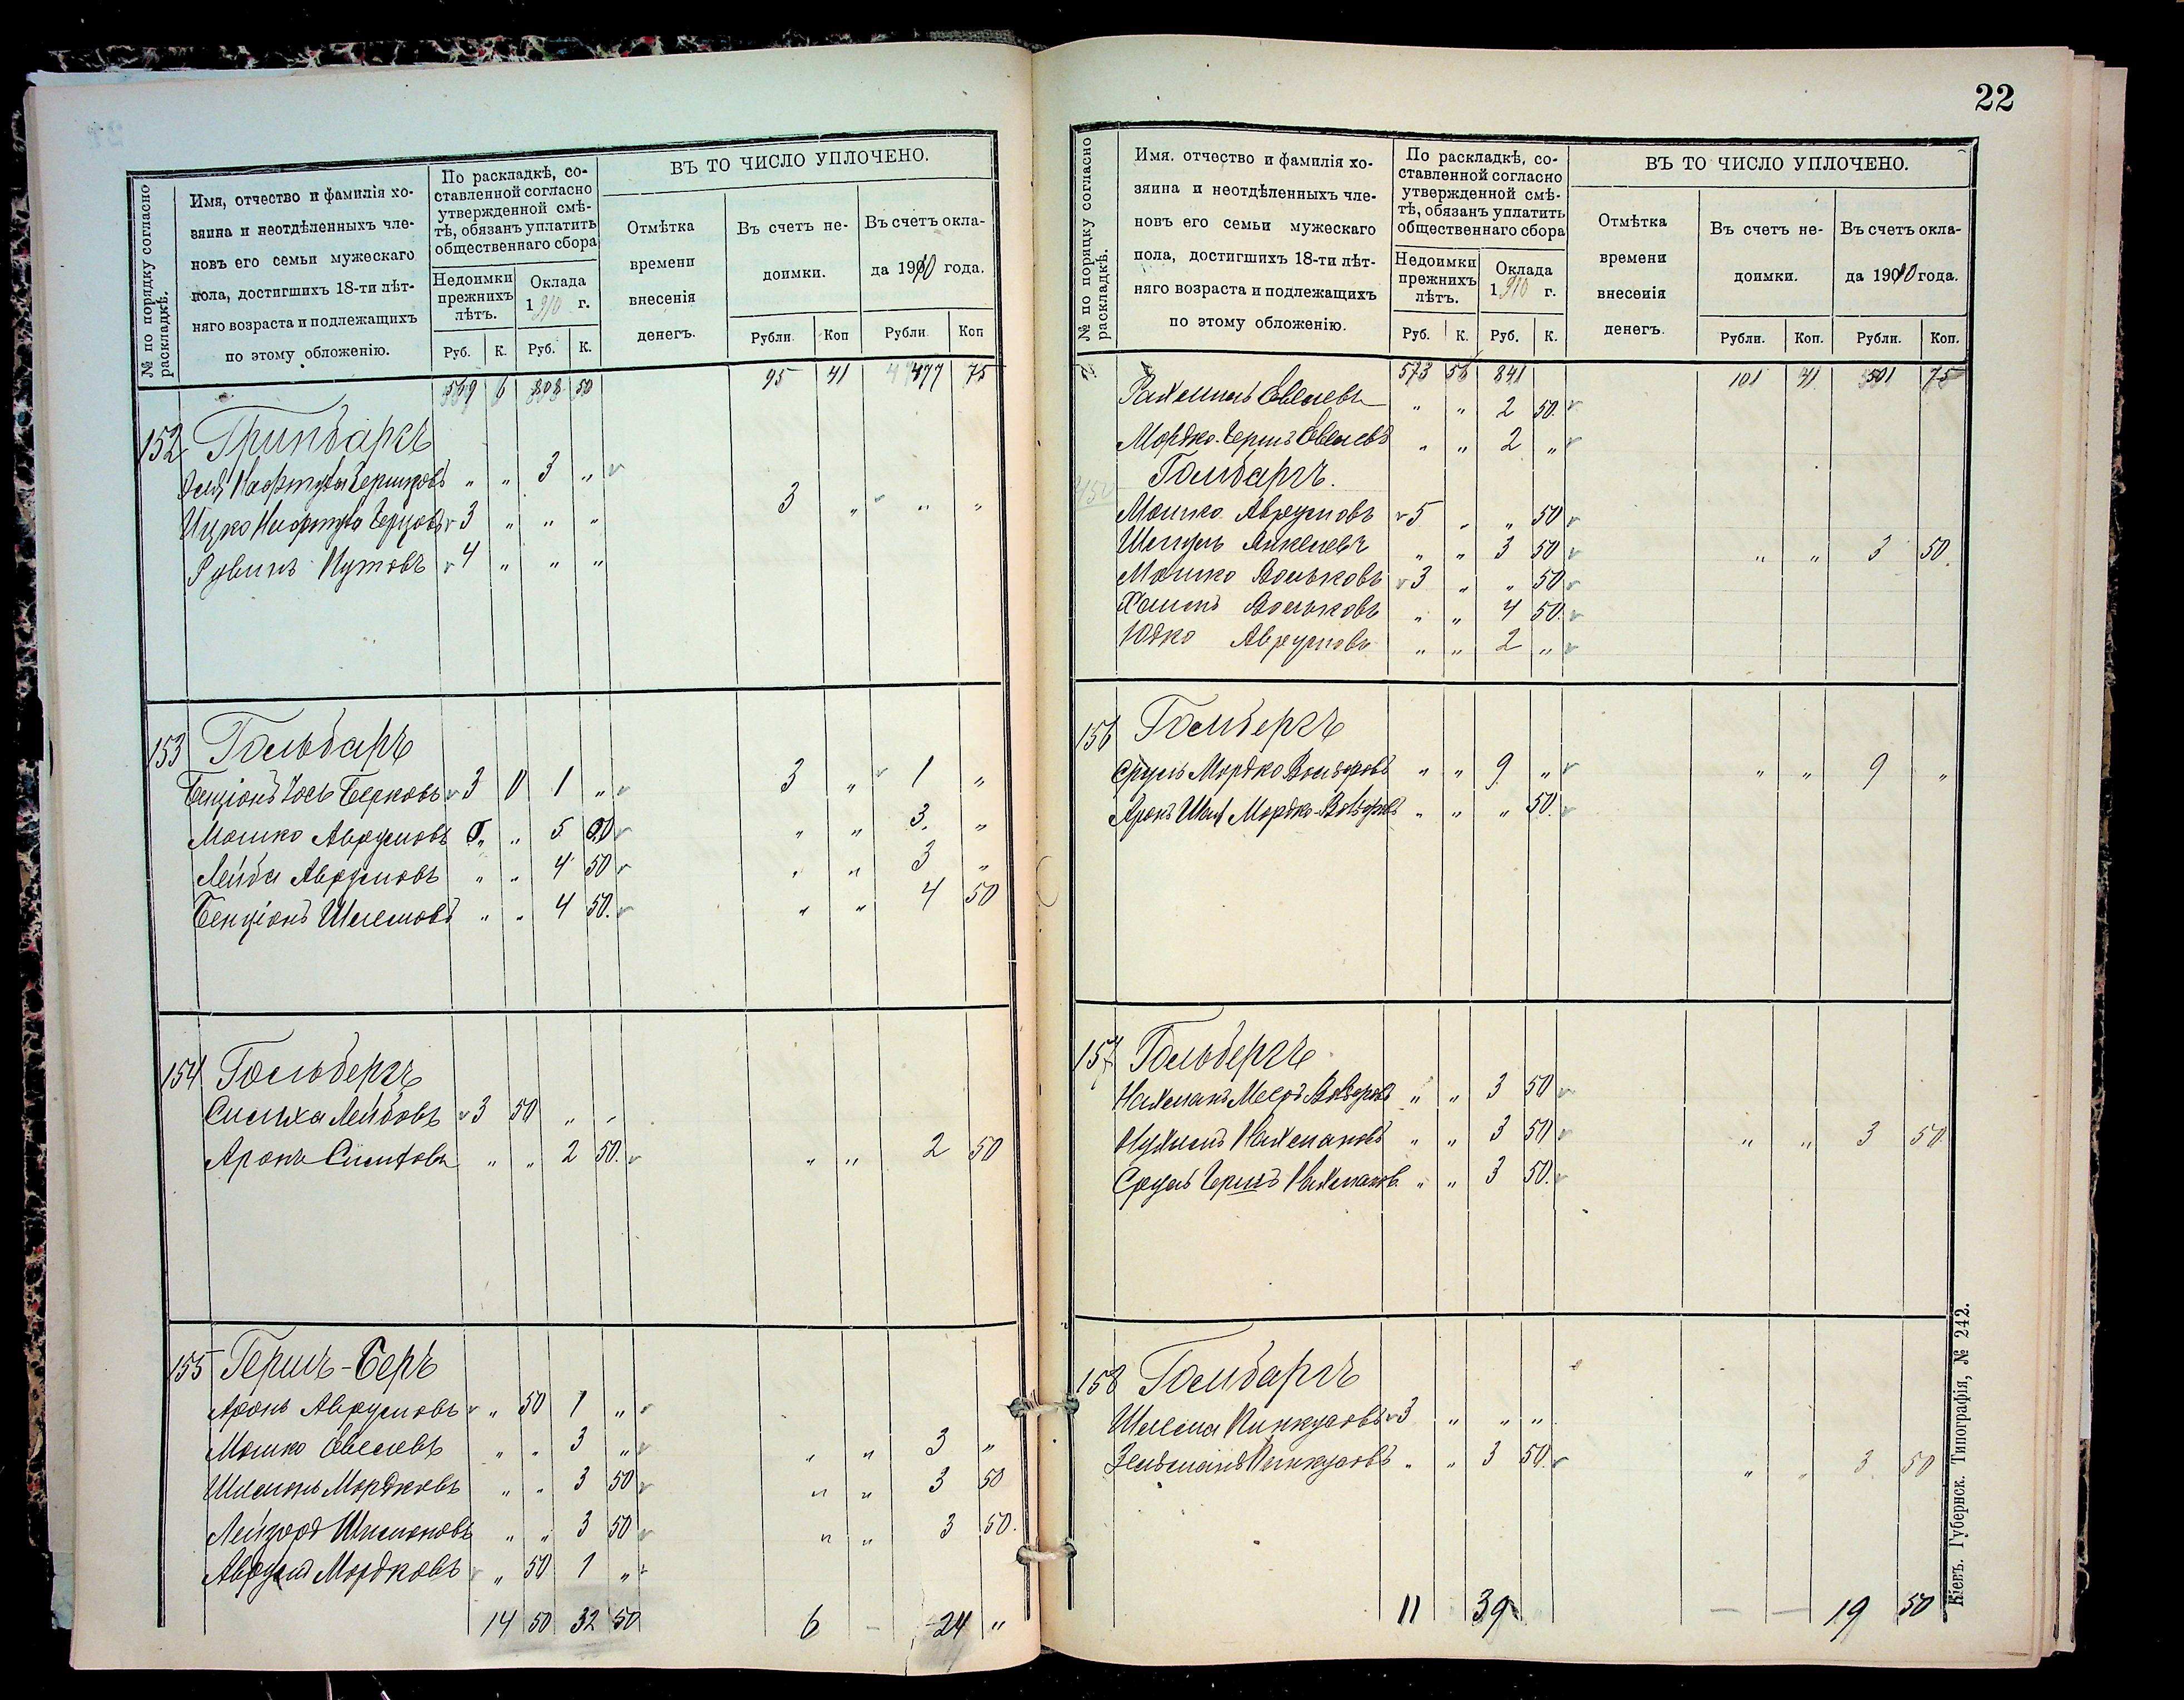 22
№ по порядку согласно раскладкѣ.
Имя, отчество и фамилія хозяина и неотдѣленныхъ членовъ его семьи мужескаго пола, достигшихъ 18-ти лѣтняго возраста и подлежащихъ по этому обложенію.
По раскладкѣ, составленной согласно утвержденной смѣтѣ, обязанъ уплатить общественнаго сбора
Недоимки прежнихъ лѣтъ.
Оклада 1910 г.
Руб. К. Руб. К.
ВЪ ТО ЧИСЛО УПЛОЧЕНО.
Отмѣтка времени внесенія денегъ.
Въ счетъ недоимки.
Въ счетъ оклада 1910 года.
Рубли Коп Рубли. Коп
559 6 808 50 95 41 477 75
152 Гринбаргъ
Нафтула Гершковъ „ „ 3 „
Ицко Нафтула Герцовъ 3 „ „ „ 3 „ „ „
Рувинъ Нутовъ 4 „ „ „
153 Гольбаръ
Бенціонъ Іось Берковъ 3 1 „ 3 „ 1 „
Мошко Аврумовъ „ 5 „ „ 3. „
Лейба Аврумовъ „ „ 4 50 „ „ 3 „
Бенціонъ Шлемовъ „ „ 4 50. „ „ 4 50
154 Гольбергъ
Симха Лейбовъ 3 50 „ „
Аронъ Симховъ „ „ 2 50. „ „ 2 50
155 Гершъ-Беръ
Аронъ Аврумовъ „ 50 1 „
Мошко Овелевъ „ „ 3 „ „ „ 3 „
Шимонъ Мордковъ „ „ 3 50 „ „ 3 50
Лейзоръ Шимоновъ „ „ 3 50 „ „ 3 50.
Аврумъ Мордковъ „ 50 1 „
14 50 32 50 6 – 24 „
№ по порядку согласно раскладкѣ.
Имя. отчество и фамилія хозяина и неотдѣленныхъ членовъ его семьи мужескаго пола, достигшихъ 18-ти лѣтняго возраста и подлежащихъ по этому обложенію.
По раскладкѣ, составленной согласно утвержденной смѣтѣ, обязанъ уплатить общественнаго сбора
Недоимки прежнихъ лѣтъ.
Оклада 1910 г.
Руб. К. Руб. К.
ВЪ ТО ЧИСЛО УПЛОЧЕНО.
Отмѣтка времени внесенія денегъ.
Въ счетъ недоимки.
Въ счетъ оклада 1910 года.
Рубли. Коп. Рубли. Коп.
573 56 841 101 41 501 75
Рахмиль Овелевъ „ „ 2 50.
Мордко-Гершъ Овелевъ „ „ 2 „
Голбаргъ.
Мошко Аврумовъ 5 „ „ 50
Шмуль Анкелевъ „ „ 3 50 „ „ 3 50.
Мошко Вольковъ 3 „ „ 50
Хаимъ Вольковъ „ „ 4 50.
Юдко Аврумовъ „ „ 2 „
156 Голбергъ
Сруль Мордко Волфовъ „ „ 9 „ „ „ 9 „
Аронъ Мордко „ „ „ 50.
157 Гольбергъ
Нахманъ Мееръ „ „ 3 50
Нухимъ Нахмановъ „ „ 3 50 „ „ 3 50
Сруль Гершъ Нахманов. „ „ 3 50.
158 Голбаргъ
Шлема Пинкусовъ 3 „ „ „
Зельманъ Пинкусовъ „ „ 3 50. „ „ 3 50
11 39 – – 19 50
Кіевъ. Губернск. Типографія, № 242.